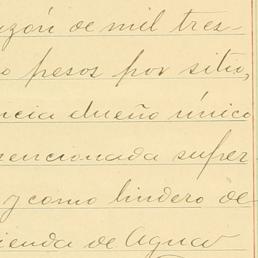 azón de mil tres-
o pesos por sitio,
ncia dueño único
mencionada super
y como lindero de
ienda de Agua